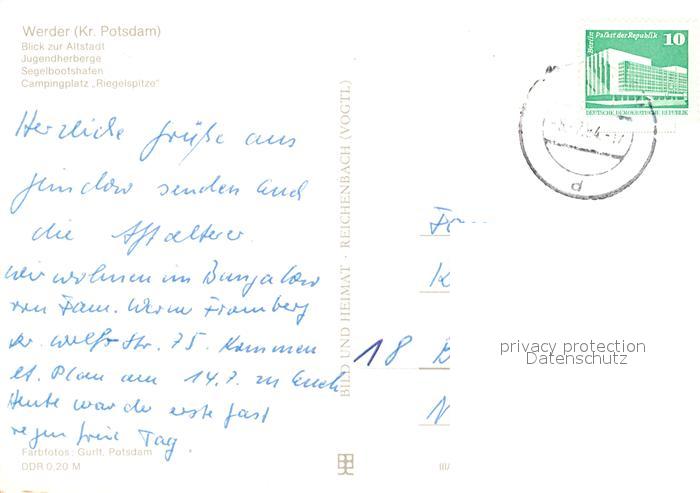 Werder (Kr. Potsdam)
Blick zur Altstadt
Jugendherberge
Segelbootshafen
Campingplatz „Riegelspitze“
Herzliche Grüße aus
senden Euch
die
wir wohnen im Bungalow
von Fam. Werner Fromberg
Str. 75. Kommen
lt. Plan am 14.7. zu Euch
Heute war der erste fast
regenfreie Tag.
Farbfotos: Gurlt, Potsdam
DDR 0,20 M
BILD UND HEIMAT · REICHENBACH (VOGTL)
Berlin Palast der Republik 10
DEUTSCHE DEMOKRATISCHE REPUBLIK
d
Fa
K
18 B
N
III/
privacy protection
Datenschutz